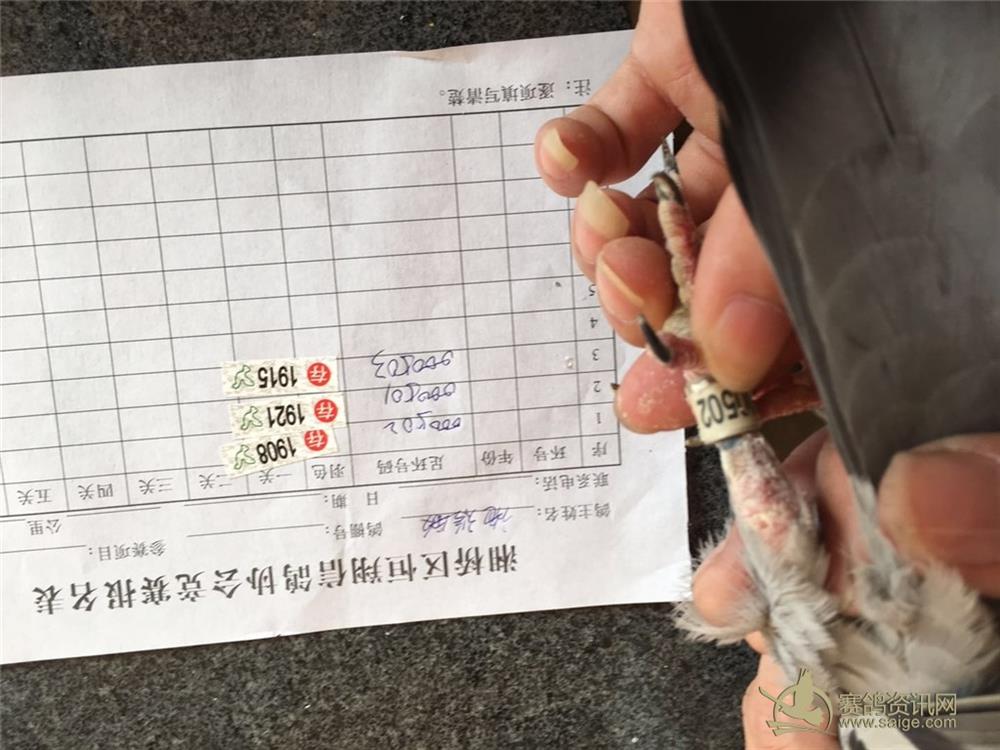 湘桥区恒翔信鸽协会竞赛报名表
鸽主姓名: 鸽棚号: 参赛项目: 公里
联系电话: 日期:
序 环号 年份 足环号码 羽色 一关 二关 三关 四关 五关
1 000502 1908 存
2 000501 1921 存
3 000503 1915 存
4
5
注: 逐项填写清楚。
502
赛鸽资讯网
www.saige.com